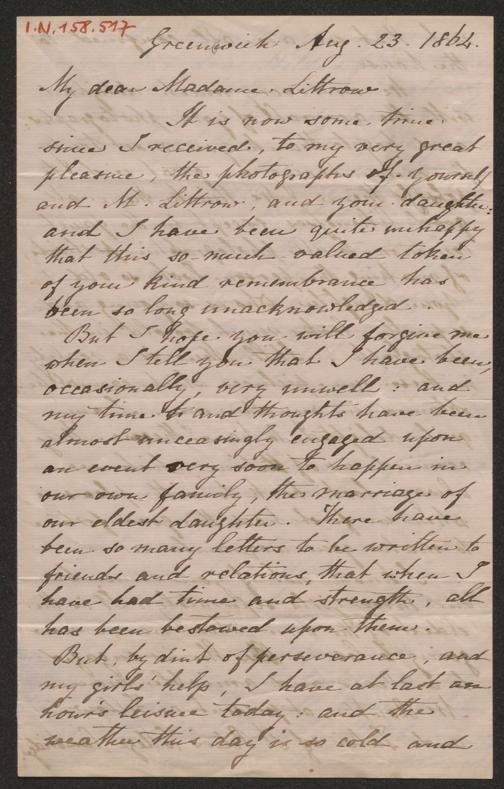 I.N. 158.517
Greenwich Aug. 23. 1864.
My dear Madame Littrow
It is now some time
since I received, to my very great
pleasure, the photographs of yourself
and M. Littrow, and your daughter:
and I have been quite unhappy
that this so much valued token
of your kind remembrance has
been so long unacknowledged.
But I hope you will forgive me
when I tell you that I have been,
occasionally, very unwell: and
my time and thoughts have been
almost unceasingly engaged upon
an event very soon to happen in
our own family, the marriage of
our eldest daughter. There have
been so many letters to be written to
friends and relations, that when I
have had time and strength, all
has been bestowed upon them.
But, by dint of perseverance, and
my girls' help, I have at last an
hour's leisure today: and the
weather this day is so cold and